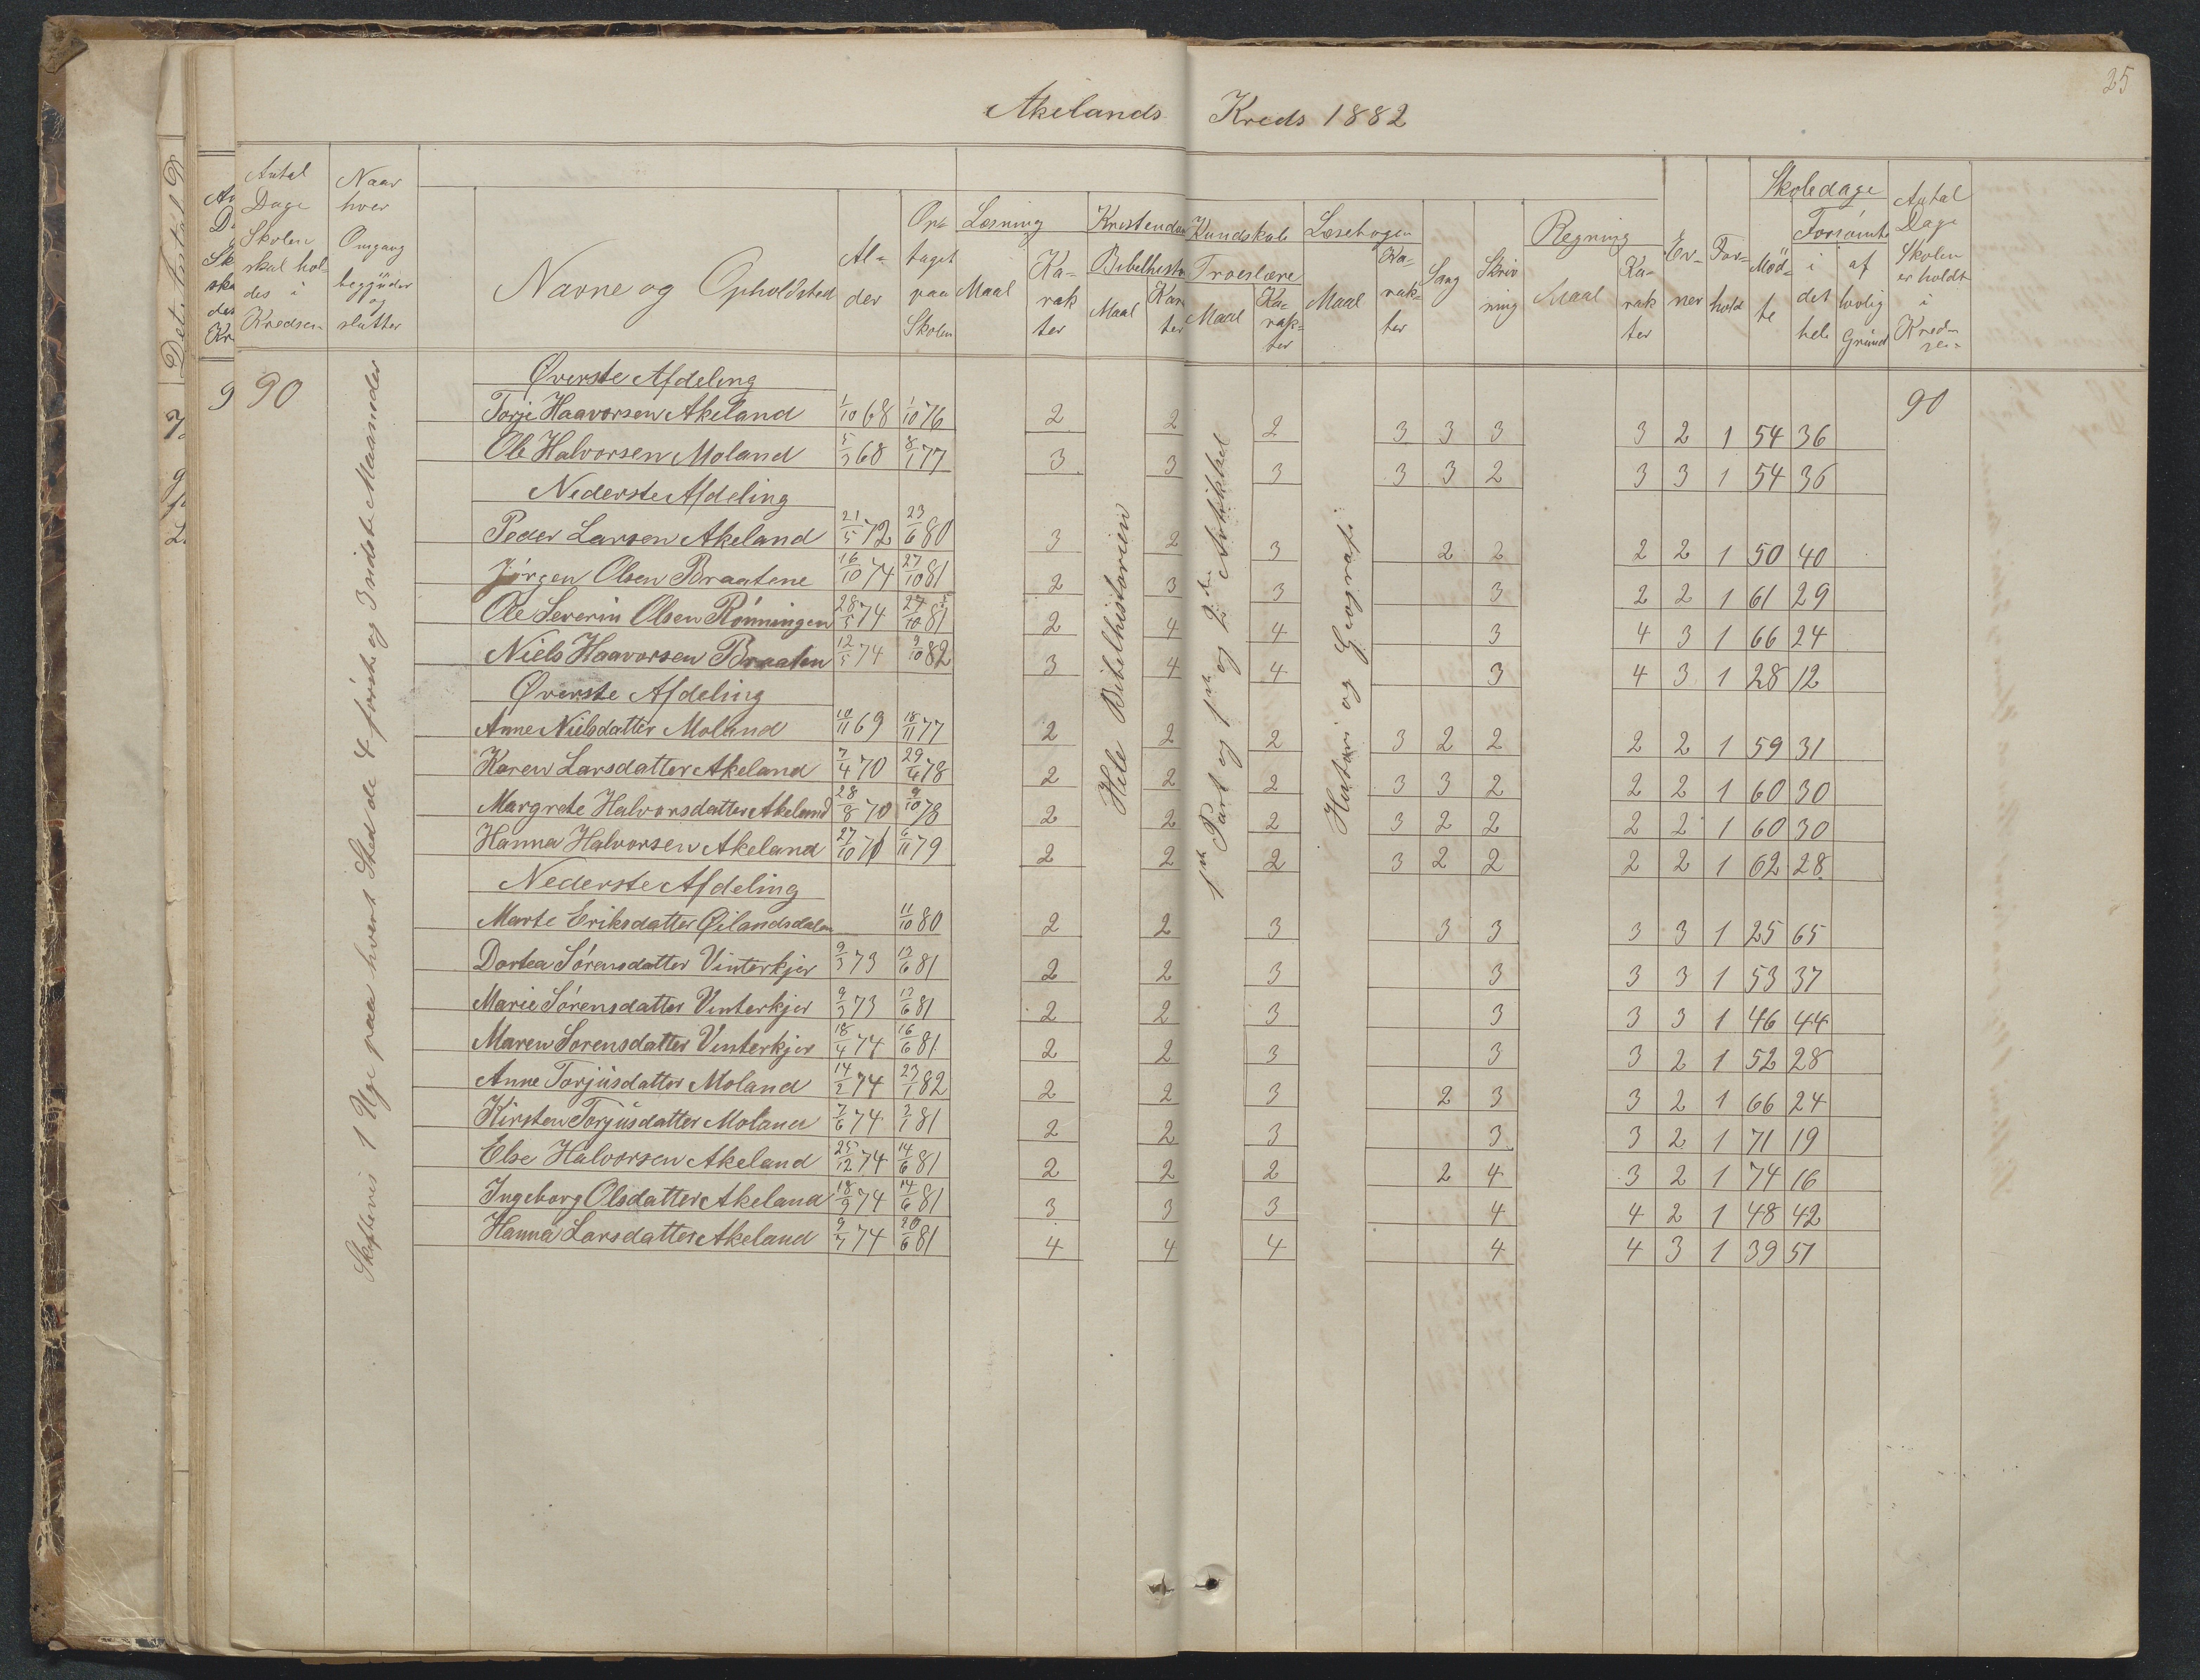 25
Akelands Kreds 1882
Antal Dage Skolen skal holdes i Kredsen
Naar hver Omgang begynder og slutter
Navne og Opholdsted
Alder
Optaget paa Skolen
Læsning
Maal
Karakter
Kristendoms Kundskab
Bibelhisto
Maal
Karakter
Troeslære
Maal
Karakter
Læsebogen
Maal
Karakter
Sang
Skrivning
Regning
Maal
Karakter
Evner
Forhold
Skoledage
Mödte
Forsømte
i det hele
af lovlig Grund
Antal Dage Skolen er holdt i Kredsen
90
Skiftevis 1 Uge paa hvert Sted de 4 første og 3 sidste Maaneder
Hele Bibelhistorien
1ste Part og 1ste og 2den Artikkel
Historie og Geografi
90
Øverste Afdeling
Torje Haavorsen Akeland 1/10 68 1/10 76 2 2 2 3 3 3 3 2 1 54 36
Ole Halvorsen Moland 5/3 68 8/1 77 3 3 3 3 3 2 3 3 1 54 36
Nederste Afdeling
Peder Larsen Akeland 21/5 72 23/6 80 3 2 3 2 2 2 2 1 50 40
Jørgen Olsen Braatene 16/10 74 27/10 81 2 3 3 3 2 2 1 61 29
Ole Severin Olsen Rønningen 28/5 74 27/10 81 2 4 4 3 4 3 1 66 24
Niels Haavorsen Braaten 12/5 74 9/10 82 3 4 4 3 4 3 1 28 12
Øverste Afdeling
Anne Nielsdatter Moland 10/11 69 18/11 77 2 2 2 3 2 2 2 2 1 59 31
Karen Larsdatter Akeland 7/4 70 29/4 78 2 2 2 3 3 2 2 2 1 60 30
Margrete Halvorsdatter Akeland 28/8 70 9/10 78 2 2 2 3 2 2 2 2 1 60 30
Hanna Halvorsen Akeland 27/10 71 6/11 79 2 2 2 3 2 2 2 2 1 62 28
Nederste Afdeling
Marte Eriksdatter Øilandsdalen 11/10 80 2 2 3 3 3 3 3 1 25 65
Dortea Sørensdatter Vinterkjer 9/3 73 13/6 81 2 2 3 3 3 3 1 53 37
Marie Sørensdatter Vinterkjer 9/3 73 13/6 81 2 2 3 3 3 3 1 46 44
Maren Sorensdatter Vinterkjer 18/4 74 16/6 81 2 2 3 3 3 2 1 52 28
Anne Torjusdatter Moland 14/2 74 23/1 82 2 2 3 2 3 3 2 1 66 24
Kirsten Torjusdatter Moland 7/6 74 3/1 81 2 2 3 3 3 2 1 71 19
Else Halvorsen Akeland 25/12 74 14/6 81 2 2 2 2 4 3 2 1 74 16
Ingeborg Olsdatter Akeland 18/9 74 14/6 81 3 3 3 4 4 2 1 48 42
Hanna Larsdatter Akeland 9/7 74 20/6 81 4 4 4 4 4 3 1 39 51